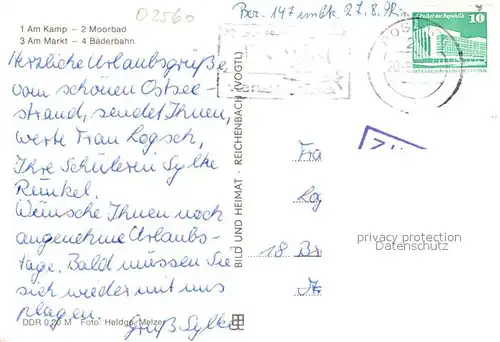 02560
1 Am Kamp – 2 Moorbad
3 Am Markt – 4 Bäderbahn
Herzliche Urlaubsgrüße
vom schönen Ostsee-
strand, sendet Ihnen,
werte Frau Logsch,
Ihre Schülerin Sylke
Runkel.
Wünsche Ihnen noch
angenehme Urlaubs-
tage. Bald müssen Sie
sich wieder mit uns
plagen.
Gruß Sylke
DDR 0,80 M Foto: Heldge, Melzer
BILD UND HEIMAT · REICHENBACH (VOGTL)
27.8.
Palast der Republik 10
Fra
Log
18 Br
privacy protection
Datenschutz